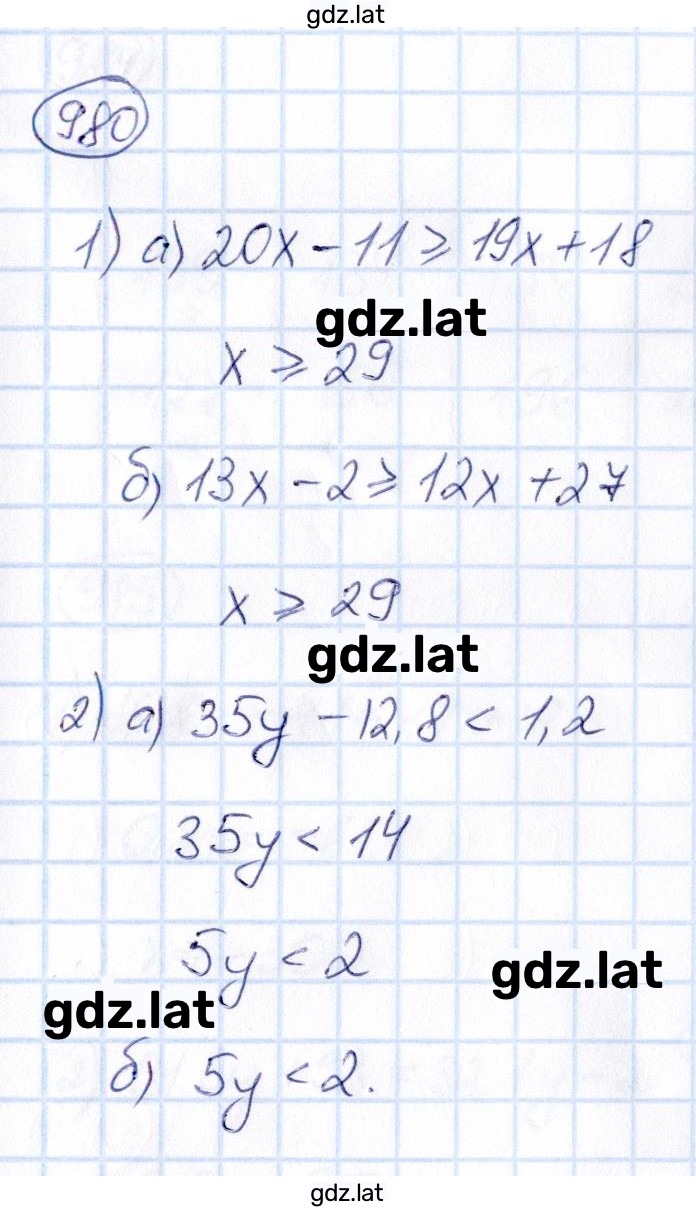 gdz.lat
980
1) а) 20x - 11 ⩾ 19x + 18
gdz.lat
x ⩾ 29
б) 13x - 2 ⩾ 12x + 27
x ⩾ 29
gdz.lat
2) а) 35y - 12,8 < 1,2
35y < 14
5y < 2
gdz.lat
gdz.lat
б) 5y < 2.
gdz.lat